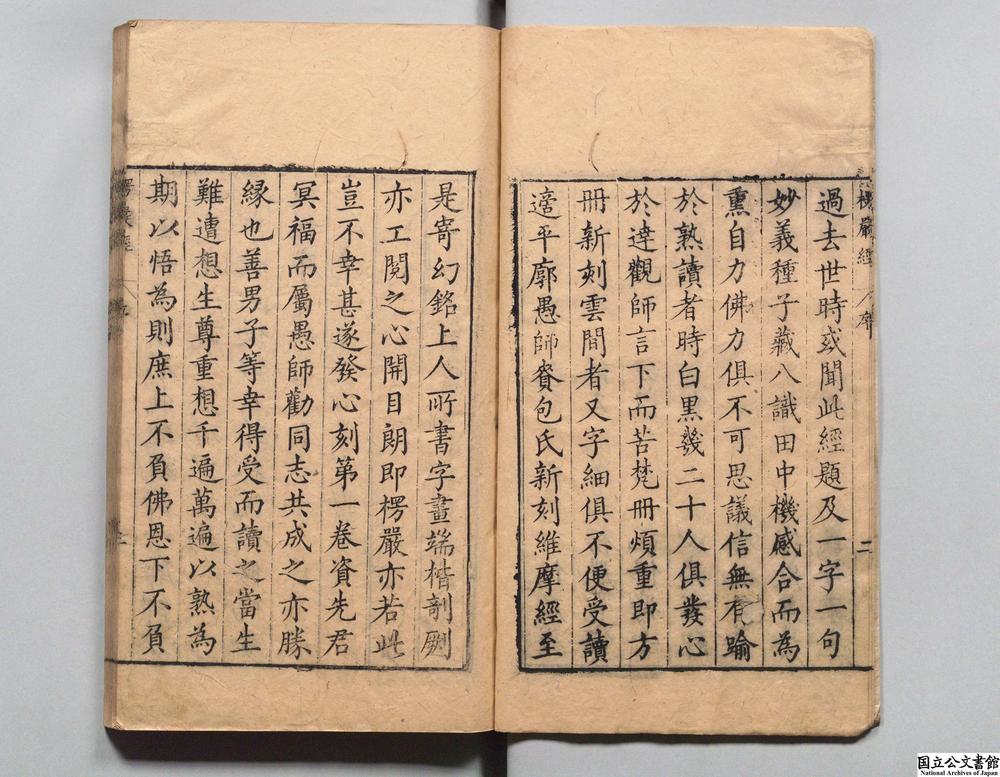 楞嚴經 序 二
過去世時或聞此經題及一字一句
妙義種子藏八識田中機感合而為
熏自力佛力俱不可思議信無有踰
於熟讀者時白黑幾二十人俱發心
於達觀師言下而苦梵冊煩重即方
冊新刻雲間者又字細俱不便受讀
適平廓愚師賚包氏新刻維摩經至
是寄幻銘上人所書字畫端楷剞劂
亦工閱之心開目朗即楞嚴亦若此
豈不幸甚遂發心刻第一卷資先君
冥福而屬愚師勸同志共成之亦勝
緣也善男子等幸得受而讀之當生
難遭想生尊重想千遍萬遍以熟為
期以悟為則庶上不負佛恩下不負
国立公文書館
National Archives of Japan